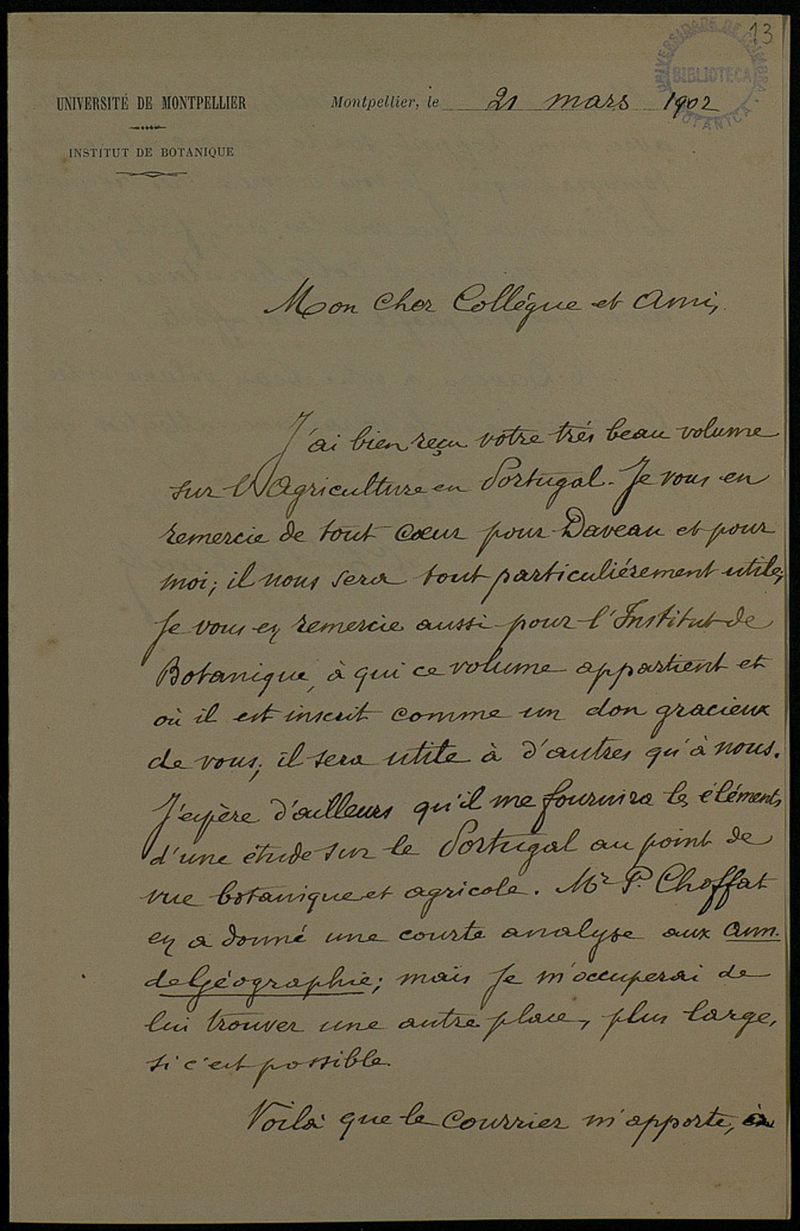 13
UNIVERSIDADE DE COIMBRA
BIBLIOTECA
BOTANICA
UNIVERSITÉ DE MONTPELLIER
INSTITUT DE BOTANIQUE
Montpellier, le 21 mars 1902
Mon cher Collègue et ami,
J'ai bien reçu votre très beau volume
sur l'Agriculture en Portugal. Je vous en
remercie de tout cœur pour Daveau et pour
moi; il nous sera tout particulièrement utile;
Je vous en remercie aussi pour l'Institut de
Botanique, à qui ce volume appartient et
où il est inscrit comme un don gracieux
de vous; il sera utile à d'autres qu'à nous.
J'espère d'ailleurs qu'il me fournira les éléments
d'une étude sur le Portugal au point de
vue botanique et agricole. Mr P. Choffat
en a donné une courte analyse aux Ann.
de Géographie; mais je m'occuperai de
lui trouver une autre place, plus large,
si c'est possible.
Voilà que le courrier m'apporte, à